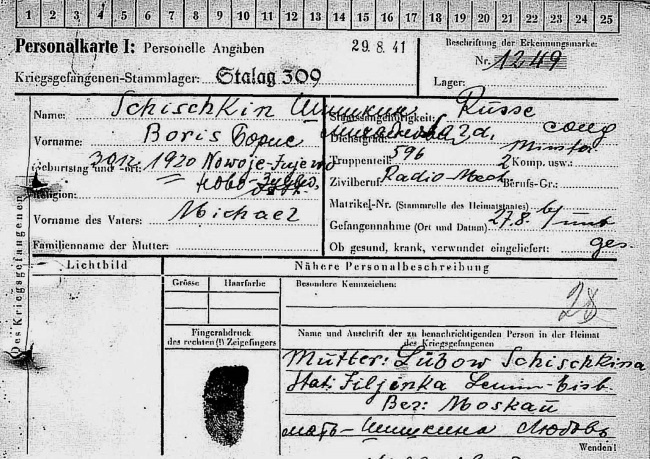 1 2 3 4 5 6 7 8 9 10 11 12 13 14 15 16 17 18 19 20 21 22 23 24 25
Personalkarte I: Personelle Angaben
29.8.41
Beschriftung der Erkennungsmarke:
Nr. 1249
Kriegsgefangenen-Stammlager: Stalag 309
Lager:
Des Kriegsgefangenen
Name: Schischkin Шишкин
Vorname: Boris Борис
Geburtstag und -ort: 1920 Nowoje-
Ново-
Religion:
Vorname des Vaters: Michael
Familienname der Mutter:
Staatsangehörigkeit: Russe
Dienstgrad: Sold. солд
Truppenteil: 596 2 Komp. usw.: Minsk
Zivilberuf: Radio Mech Berufs-Gr.:
Matrikel-Nr. (Stammrolle des Heimatstaates)
Gefangennahme (Ort und Datum): 27.8.
Ob gesund, krank, verwundet eingeliefert: ges.
Lichtbild
Nähere Personalbeschreibung
Grösse Haarfarbe
Besondere Kennzeichen:
28
Fingerabdruck
des rechten (!) Zeigefingers
Name und Anschrift der zu benachrichtigenden Person in der Heimat
des Kriegsgefangenen
Mutter: Lübow Schischkina
Stat: Filjenka Lenin-
Bez: Moskau
мать - Шишкина Любовь
Wenden!